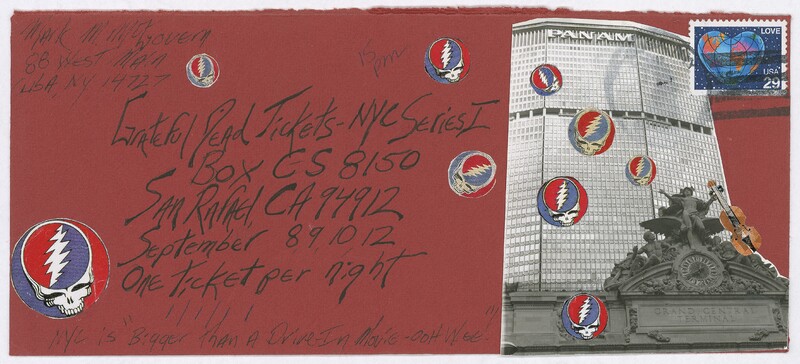 Mark M
88 West Main
CUBA NY 14727
Grateful Dead Tickets - NYC Series I
Box CS 8150
San Rafael, CA 94912
September 8 9, 10 12
One Ticket per night
NYC is "Bigger than A Drive-In Movie - ooH Wee"
PAN AM
LOVE
USA
29
GRAND CENTRAL
TERMINAL